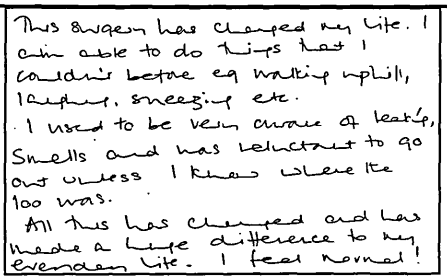 This surgery has changed my life. I
am able to do things that I
couldn't before eg walking uphill,
laughing, sneezing etc.
I used to be very aware of leaking,
smells and was reluctant to go
out unless I knew where the
loo was.
All this has changed and has
made a huge difference to my
everyday life. I feel normal!